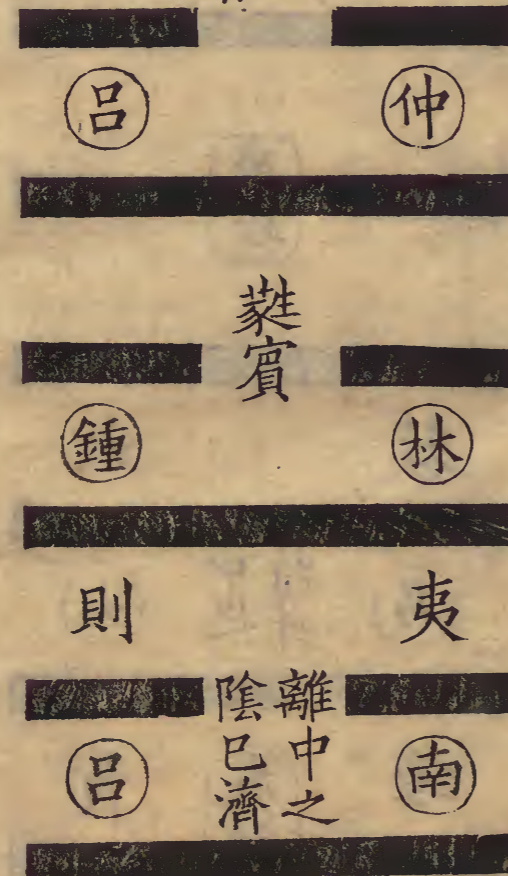 仲呂
蕤賓
林鍾
夷則
離中之
陰已濟
南呂